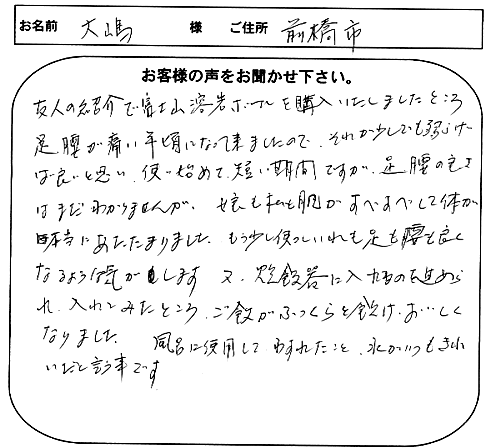 お名前 大嶋 様 ご住所 前橋市
お客様の声をお聞かせ下さい。
友人の紹介で富士山溶岩ボールを購入いたしましたところ
足腰が痛い年頃になって来ましたので、それが少しでも
は良いと思い、使い始めて、短い期間ですが、足腰の良さ
はまだわかりませんが、娘も私も肌がすべすべして体が
本当にあたたまりました。もう少し使っていれも足も腰も良く
なるような気がします 又、炊飯器に入れるのを進めら
れ、入れてみたところ、ご飯がふっくらと炊け、おいしく
なりました。 風呂に使用して わすれたこと、水がいつもきれ
いだと言う事です